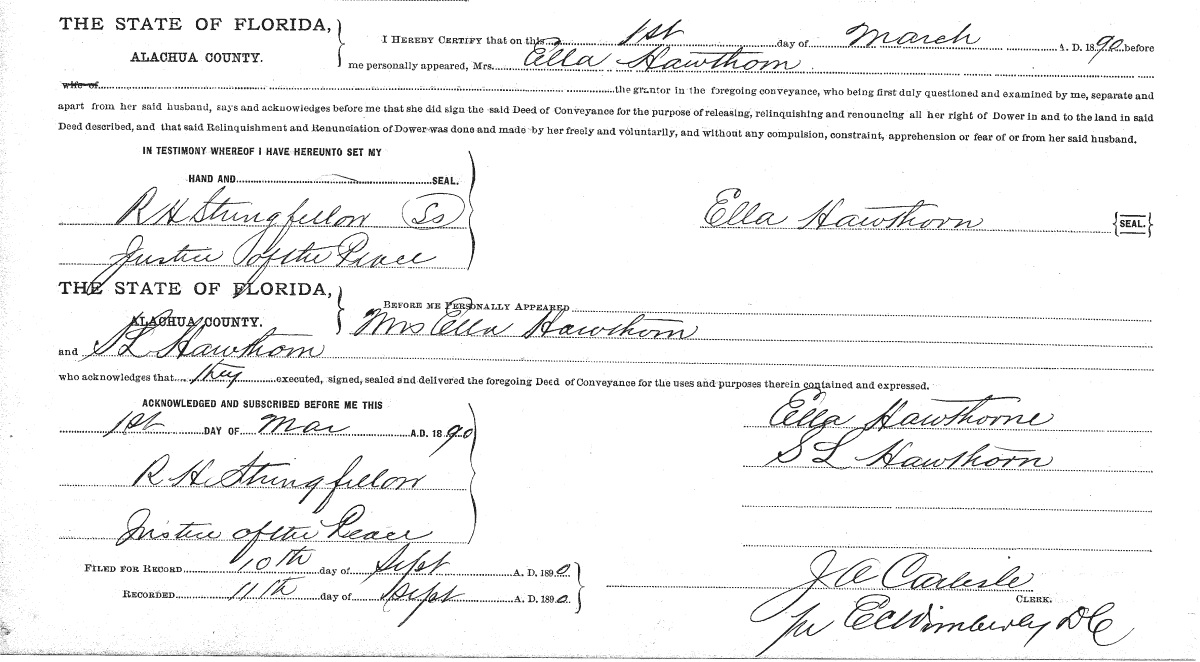 THE STATE OF FLORIDA,
ALACHUA COUNTY.
I HEREBY CERTIFY that on this 1st day of March A. D. 1890 before
me personally appeared, Mrs. Ella Hawthorn
wife of the grantor in the foregoing conveyance, who being first duly questioned and examined by me, separate and
apart from her said husband, says and acknowledges before me that she did sign the said Deed of Conveyance for the purpose of releasing, relinquishing and renouncing all her right of Dower in and to the land in said
Deed described, and that said Relinquishment and Renunciation of Dower was done and made by her freely and voluntarily, and without any compulsion, constraint, apprehension or fear of or from her said husband.
IN TESTIMONY WHEREOF I HAVE HEREUNTO SET MY
HAND AND SEAL.
R H Stringfellow
Justice of the Peace
Ella Hawthorn {SEAL.}
THE STATE OF FLORIDA,
ALACHUA COUNTY.
BEFORE ME PERSONALLY APPEARED
Mrs Ella Hawthorn
and S L Hawthorn
who acknowledges that they executed, signed, sealed and delivered the foregoing Deed of Conveyance for the uses and purposes therein contained and expressed.
ACKNOWLEDGED AND SUBSCRIBED BEFORE ME THIS
1st DAY OF Mar A.D. 1890
R H Stringfellow
Justice of the Peace
Ella Hawthorne
S L Hawthorn
FILED FOR RECORD 10th day of Sept A. D. 1890
RECORDED 11th day of Sept A. D. 1890.
J A Carlisle
CLERK.
pr E C Wimberly D C